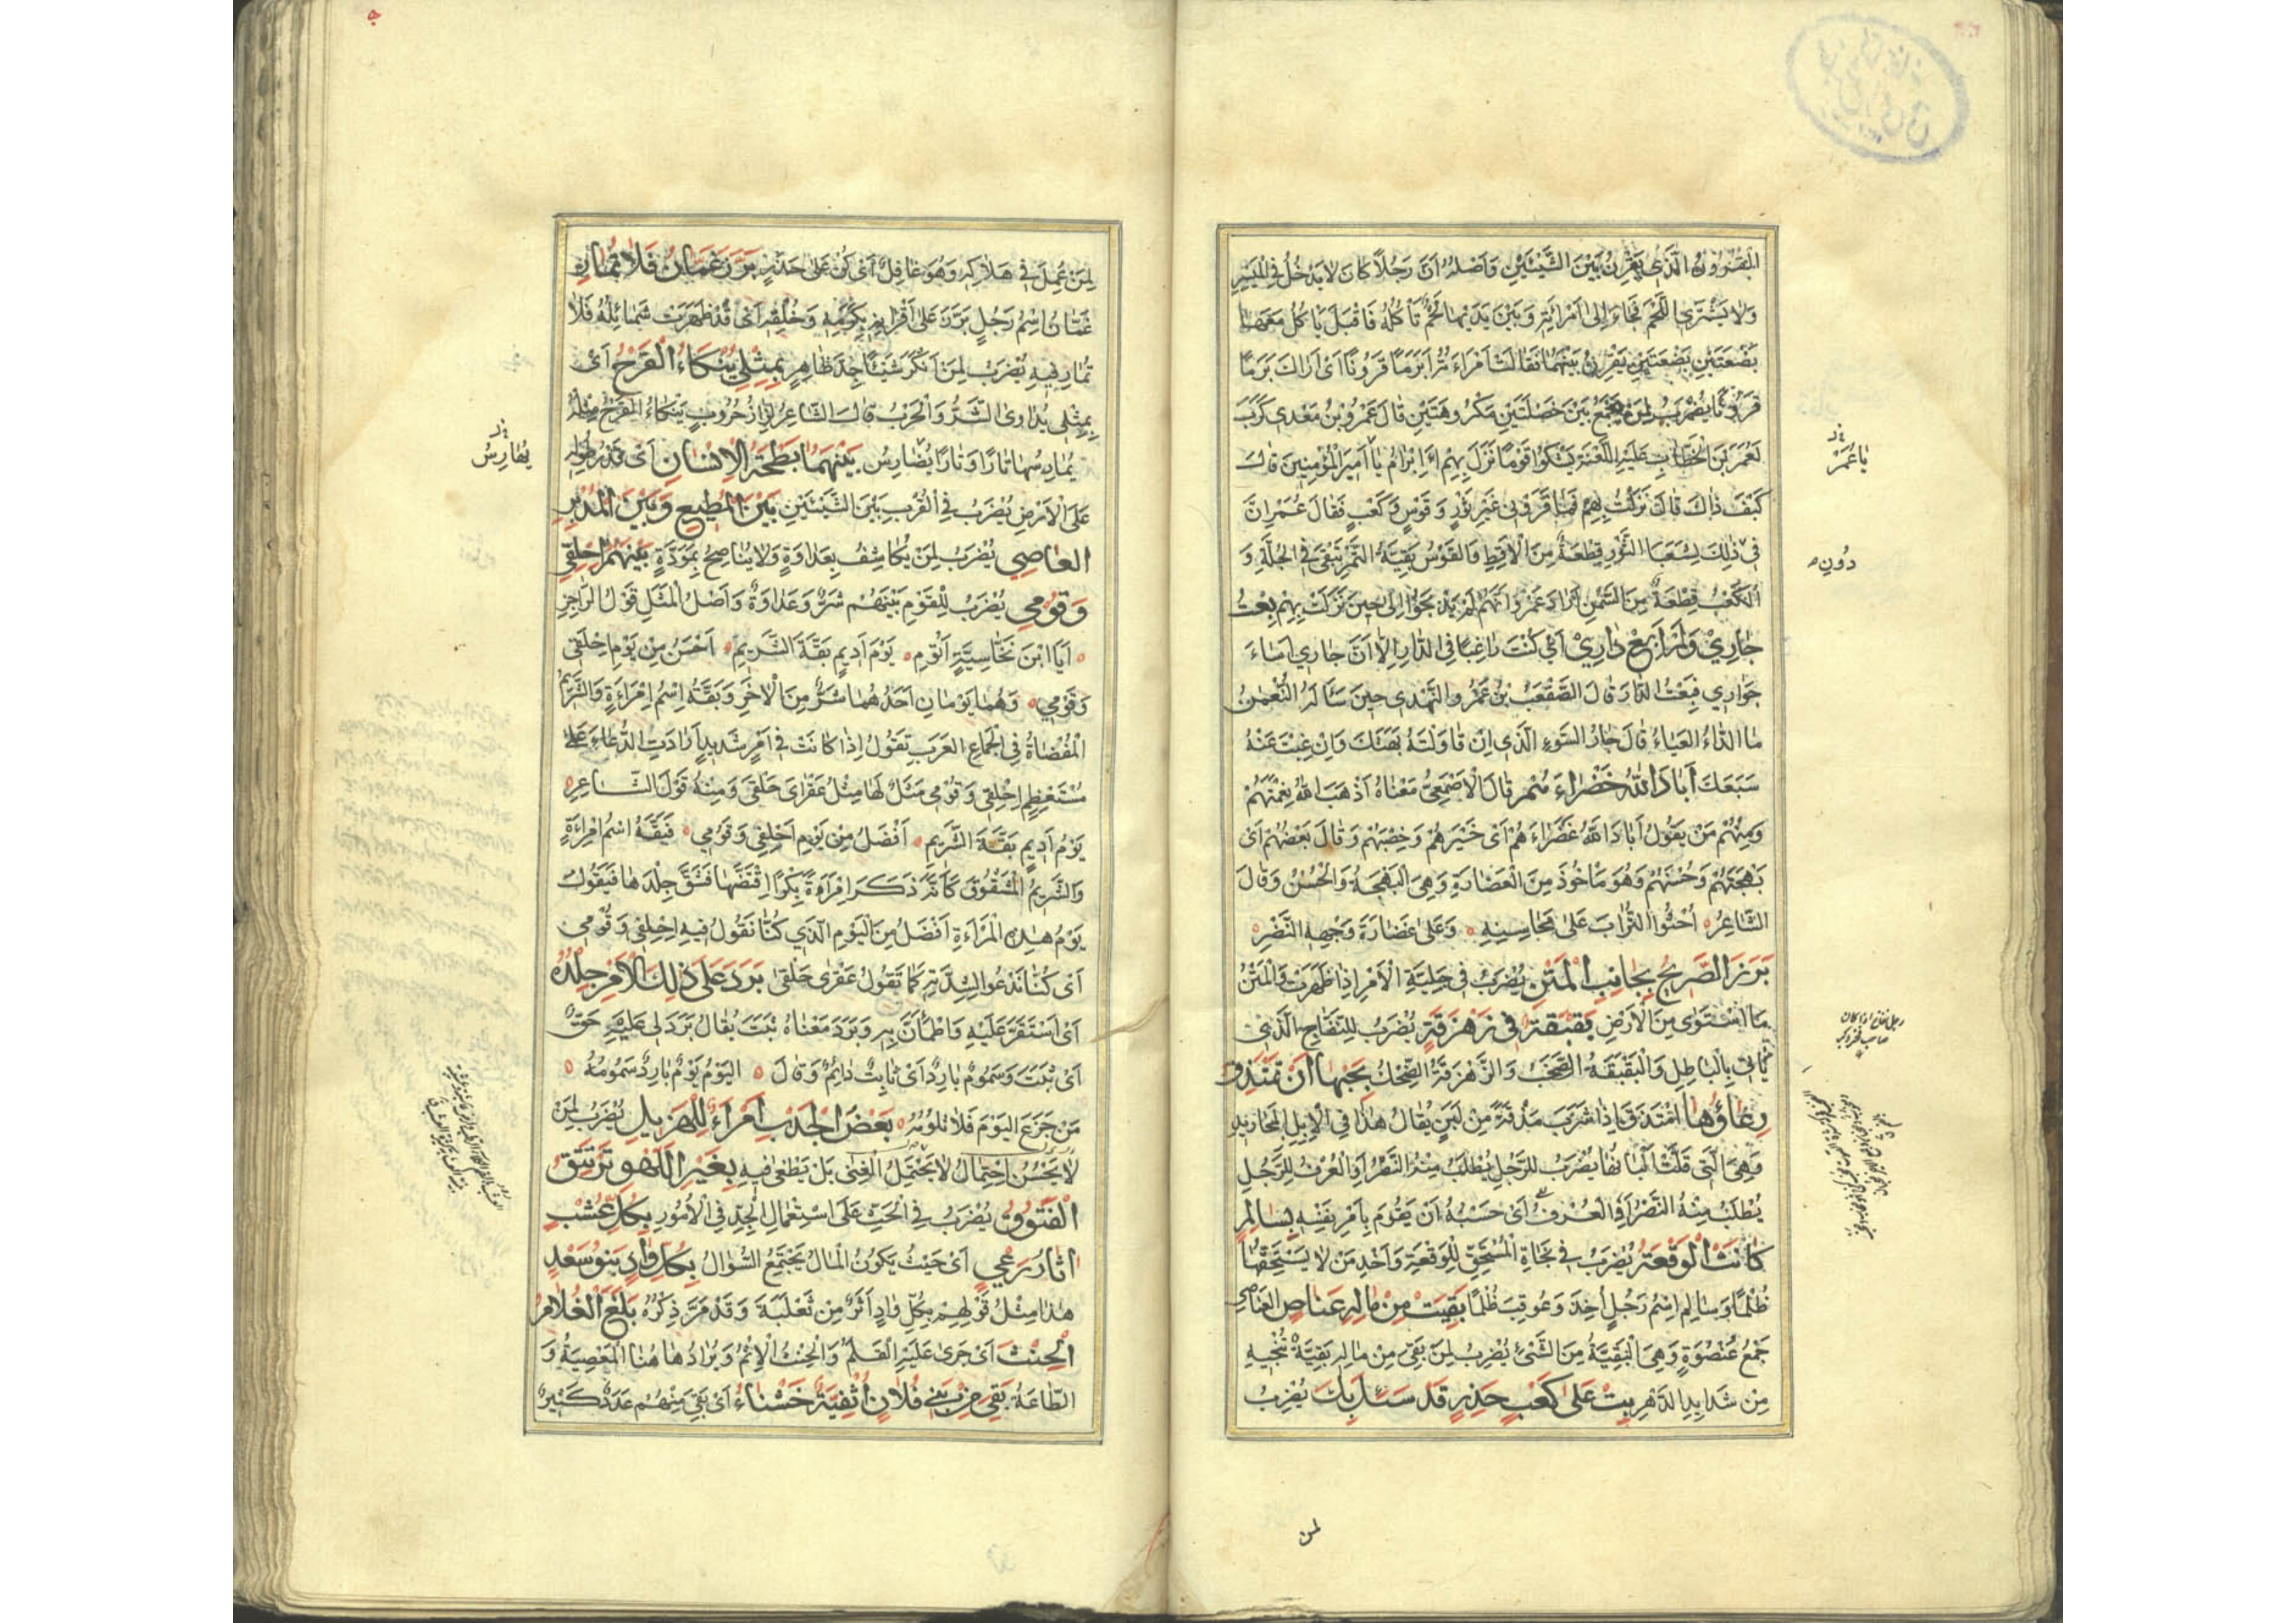 المقرون الذي يقرن بين الشيئين واصله ان رجلا كان لا يدخل في الميسر
ولا يشتري اللحم فجاء الى امرأته وبين يديها لحم تأكله فاقبل يأكل معها
بضعتين بضعتين يقرن بينهما فقالت امراءته ابرما قرونا اى اراك برما
قرونا يضرب لمن يجمع بين خصلتين مكروهتين قال عمرو بن معدي كرب
لعمر بن الخطاب عليه اللعنة يشكوا قوما نزل بهم ءابرام يا امير المؤمنين قال
كيف ذاك قال نزلت بهم فما قروني غير ثور وقوس وكعب فقال عمر ان
في ذلك لشبعا الثور قطعة من الاقط والقوس بقية التمر تبقى في الجلة و
الكعب قطعة من السمن اراد عمرو انهم لم يذبحوا الى حين نزلت بهم بعت
جاري ولم ابع داري اي كنت راغبا في الدار الا ان جاري اساء
جواري فبعت الدار وقال الصقعب بن عمرو النهدي حين سأله النعمن
ما الداء العياء قال جار السوء الذي ان قاولته بهتك وان غبت عنه
سبعك اباد الله خضراءهم قال الاصمعي معناه اذهب الله نعمتهم
ومنهم من يقول اباد الله غضراءهم اى خيرهم وخصبهم وقال بعضهم اى
بهجتهم وحسنهم وهو مأخوذ من الغضارة وهي البهجة والحسن وقال
الشاعر احثوا التراب على محاسنه وعلى غضارة وجهه النضر
برز الصريح بجانب المتن يضرب في جلية الامر اذا ظهرت والمتن
ما استوى من الارض بقبقة في زهزقة يضرب للنفاج الذي
يأتي بالباطل والبقبقة الصخب والزهزقة الضحك بجبها ان تمتذق
رعاؤها امتذق اذا شرب مذقة من لبن يقال هذا في الابل المحاريد
وهي التي قلت البانها يضرب للرجل يطلب منه النصر او العرف للرجل
يطلب منه النصر او العرف اى حسبه ان يقوم بامر نفسه بسالم
كانت الوقعة يضرب في نجاة المستحق للوقعة واخذ من لا يستحقها
ظلما وسالم اسم رجل اخذ وعوقب ظلما بقيت من ماله عناص العناصي
جمع عنصوة وهي البقية من الشئ يضرب لمن بقي من ماله بقية تنجيه
من شدايد الدهر بت على كعب حذر قد سئل بك يضرب
يا عمر
دون
رجل نفاج اذا كان
صاحب فخر وكبر
لمن
لمن عمل في هلاكه وهو غافل اى كن على حذر برز عمان فلا تمار
غمان اسم رجل برز على اقرانه بكرمه وخلقه اى قد ظهرت شمائله فلا
تمار فيه يضرب لمن انكر شيئا جد ظاهر بمثلي ينكاء القرح اى
بمثلي يداوى الشر والحرب قال الشاعر لزاز حروب ينكاء القرح مثله
يمارسها تارا وتارا يضارس بينهما بطحة الانسان اى قدر طوله
على الارض يضرب في القرب بين الشيئين بين المطيع وبين المدبر
العاصي يضرب لمن يكاشف بعداوة ولا يناصح بمودة بينهم احلقي
وقومي يضرب للقوم بينهم شر وعداوة واصل المثل قول الراجز
ايا ابن نخاسية اتوم يوم اديم بقة الشريم احسن من يوم احلقي
وقومي وهما يومان احدهما شر من الاخر وبقة اسم امراءة والشريم
المفضاة في الجماع العرب تقول اذا كانت في امر شديد ارادت الدعاء على
مستعظم احلقي وقومي مثل لها مثل عقراى حلقى ومنه قول الشاعر
يوم اديم بقة الشريم افضل من يوم احلقي وقومي فبقة اسم امراءة
والشريم المشقوق كانه ذكر امراءة بكرا اقتضها فشق جلدها فيقول
يوم هذه المراءة افضل من اليوم الذي كنا نقول فيه احلقي وقومي
اى كنا ندعو لشدته كما تقول عقرى حلقى برد على ذلك الامر جلده
اى استقر عليه واطمأن به وبرد معناه ثبت يقال برد لي عليه حق
اى ثبت وسموم بارد اى ثابت دائم وقال اليوم يوم بارد سمومه
من جزع اليوم فلا تلومه بعض الجدب امراء للهزيل يضرب لمن
لا يحسن احتمال لا يحتمل الغنى بل يطغى فيه بغير اللهو ترتتق
الفتوق يضرب في الحث على استعمال الجد في الامور بكل عشب
اثار رعي اى حيث يكون المال يجتمع السؤال بكل واد بنو سعد
هذا مثل قولهم بكل واد اثر من ثعلبة وقد مر ذكره بلغ الغلام
الحنث اى جرى عليه القلم والحنث الاثم ويراد ها هنا المعصية و
الطاعة بقي من بني فلان اثفية خشناء اى بقي منهم عدد كثير
يهارس